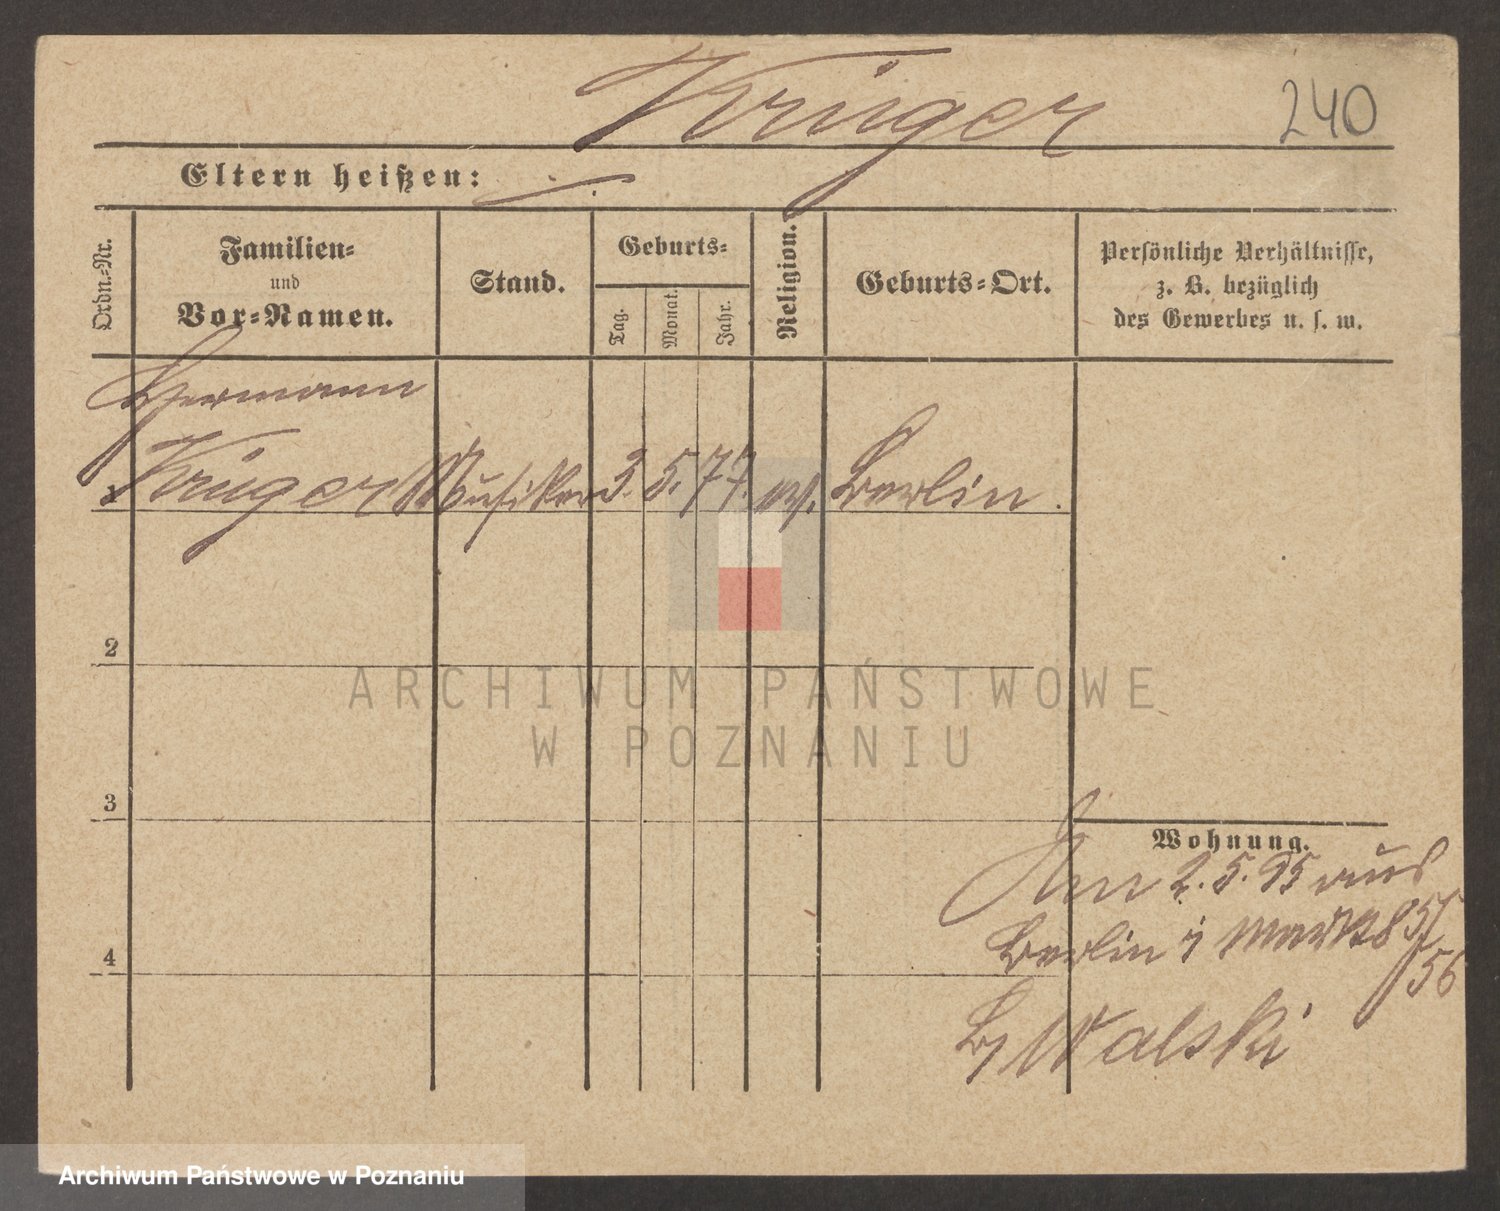 Krüger
240
Eltern heißen:
Ordn.-Nr.
Familien-
und
Vor-Namen.
Stand.
Geburts-
Tag.
Monat.
Jahr.
Religion.
Geburts-Ort.
Persönliche Verhältnisse,
z. B. bezüglich
des Gewerbes u. s. w.
Hermann
1 Krüger Musiker 3. 5. 77. ev. Berlin.
2
3
4
Wohnung.
Am 2. 5. 95 aus
Berlin Markt 55/
56
b/ Walski
ARCHIWUM PAŃSTWOWE
W POZNANIU
Archiwum Państwowe w Poznaniu